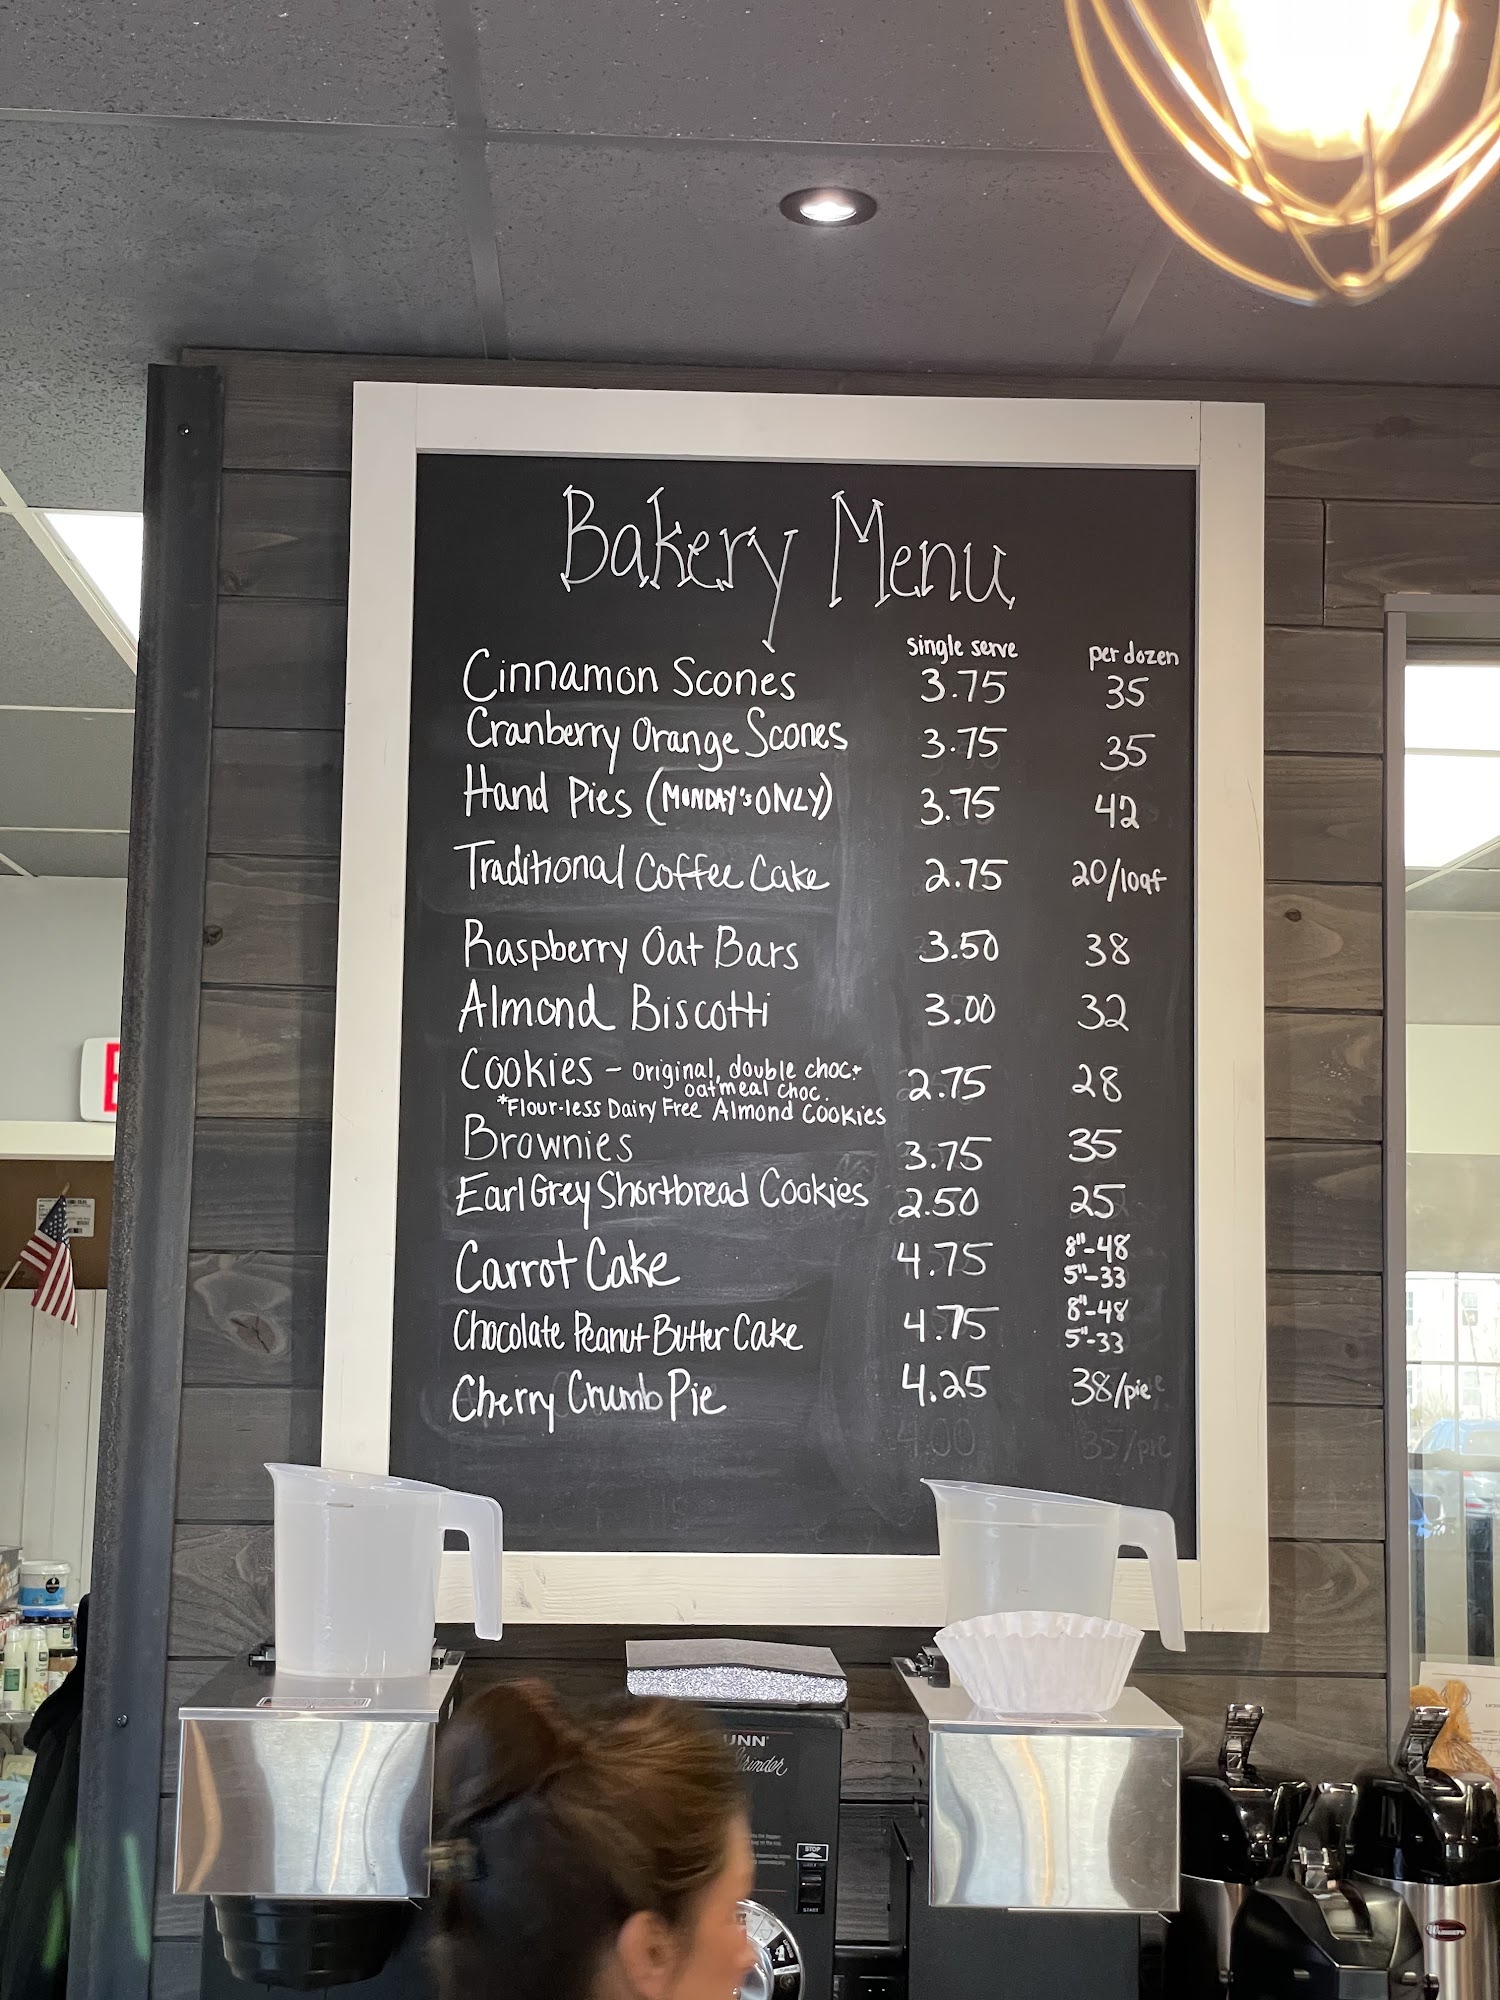 Bakery Menu
single serve per dozen
Cinnamon Scones 3.75 35
Cranberry Orange Scones 3.75 35
Hand Pies (MONDAY'S ONLY) 3.75 42
Traditional Coffee Cake 2.75 20/loaf
Raspberry Oat Bars 3.50 38
Almond Biscotti 3.00 32
Cookies - original, double choc + 2.75 28
oatmeal choc.
*Flour-less Dairy Free Almond Cookies
Brownies 3.75 35
Earl Grey Shortbread Cookies 2.50 25
Carrot Cake 4.75 8"-48
5"-33
Chocolate Peanut Butter Cake 4.75 8"-48
5"-33
Cherry Crumb Pie 4.25 38/pie
4.00 35/pie
UNN
Grinder
STOP
START